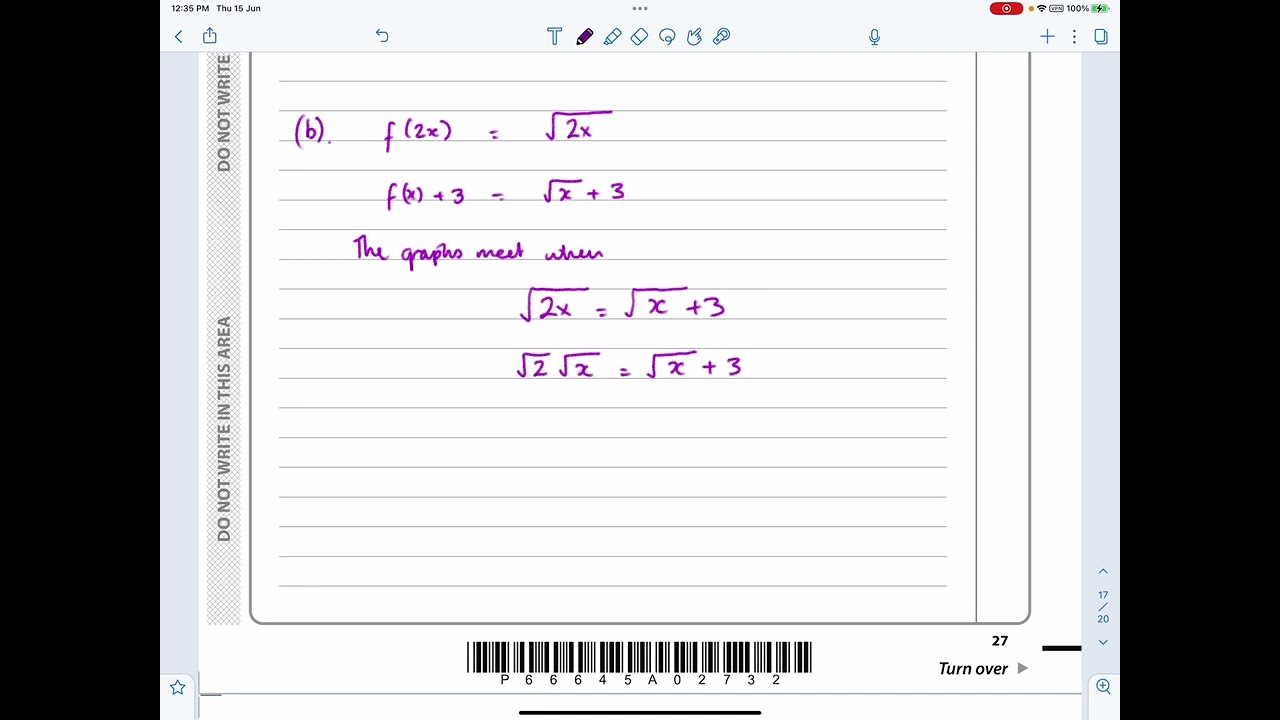 12:35 PM Thu 15 Jun
VPN 100%
T
DO NOT WRITE
(b). f(2x) = √2x
f(x) + 3 = √x + 3
The graphs meet when
√2x = √x + 3
√2 √x = √x + 3
DO NOT WRITE IN THIS AREA
17
/
20
27
P 6 6 6 4 5 A 0 2 7 3 2
Turn over